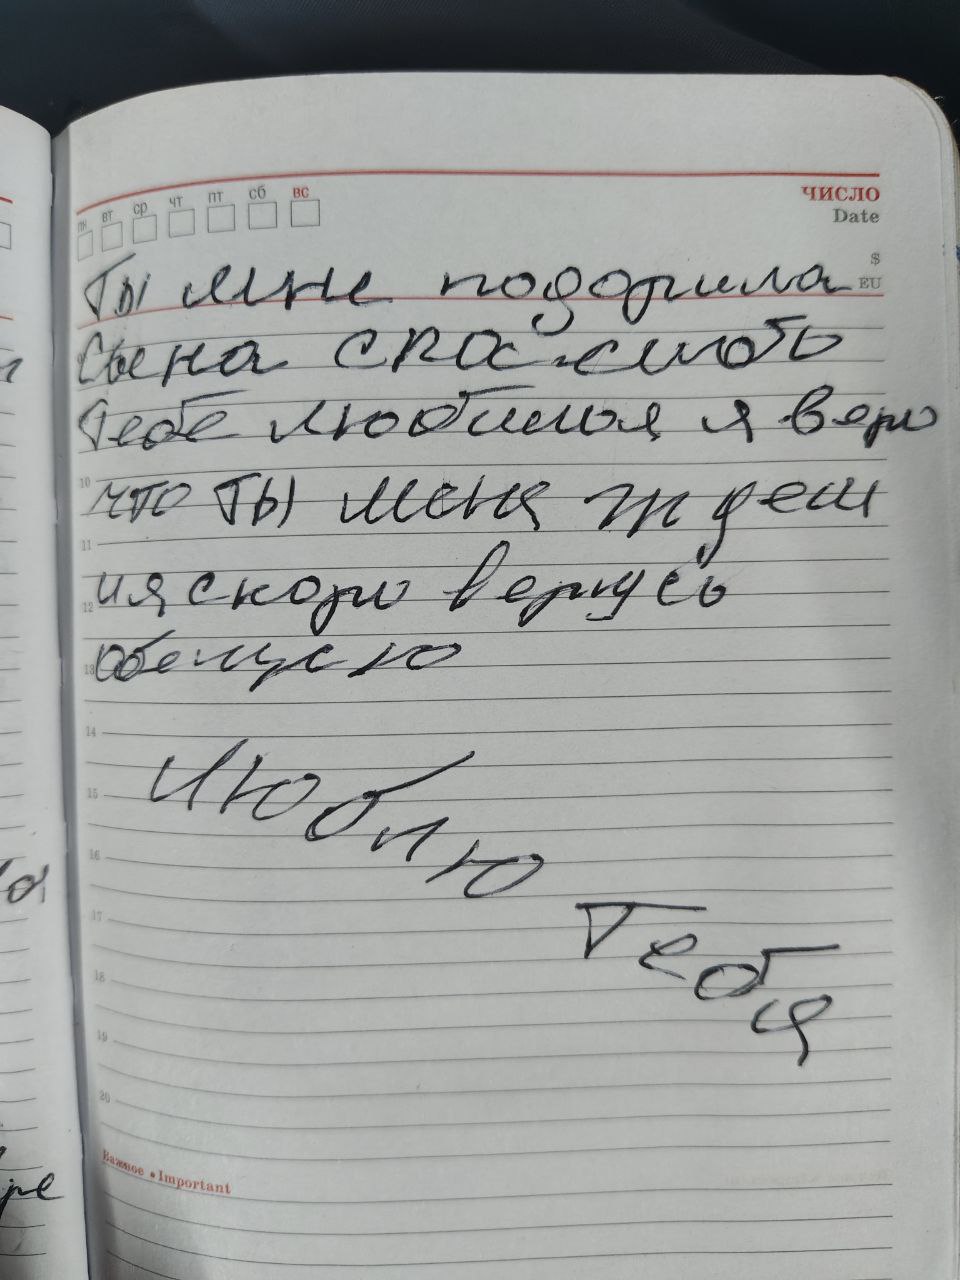 пн вт ср чт пт сб вс
ЧИСЛО
Date
$
EU
Ты мне подорила
сына спасибо
Тебе любимоя я верю
10 что ты меня ждеш
11
12 и я скоро вернусь
13 обещяю
14
люблю
15
16
17
Тебя
18
19
20
Важное • Important